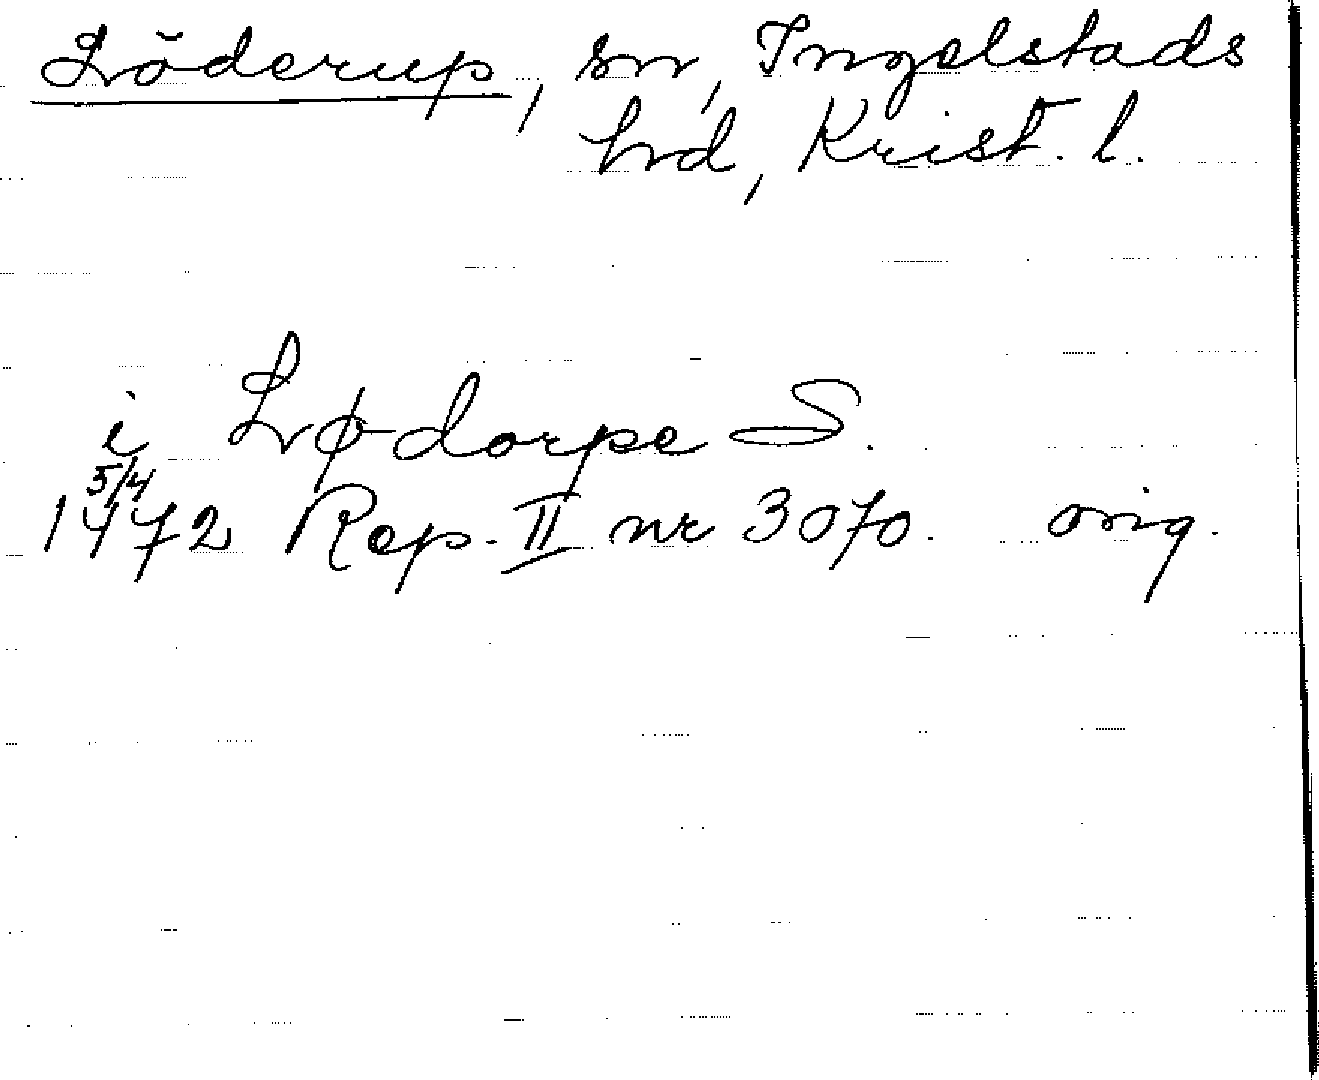 Löderup, sn, Ingelstads
hd, Krist. l.
i Lødorpe S.
5/4
1472 Rep. II nr 3070. orig.